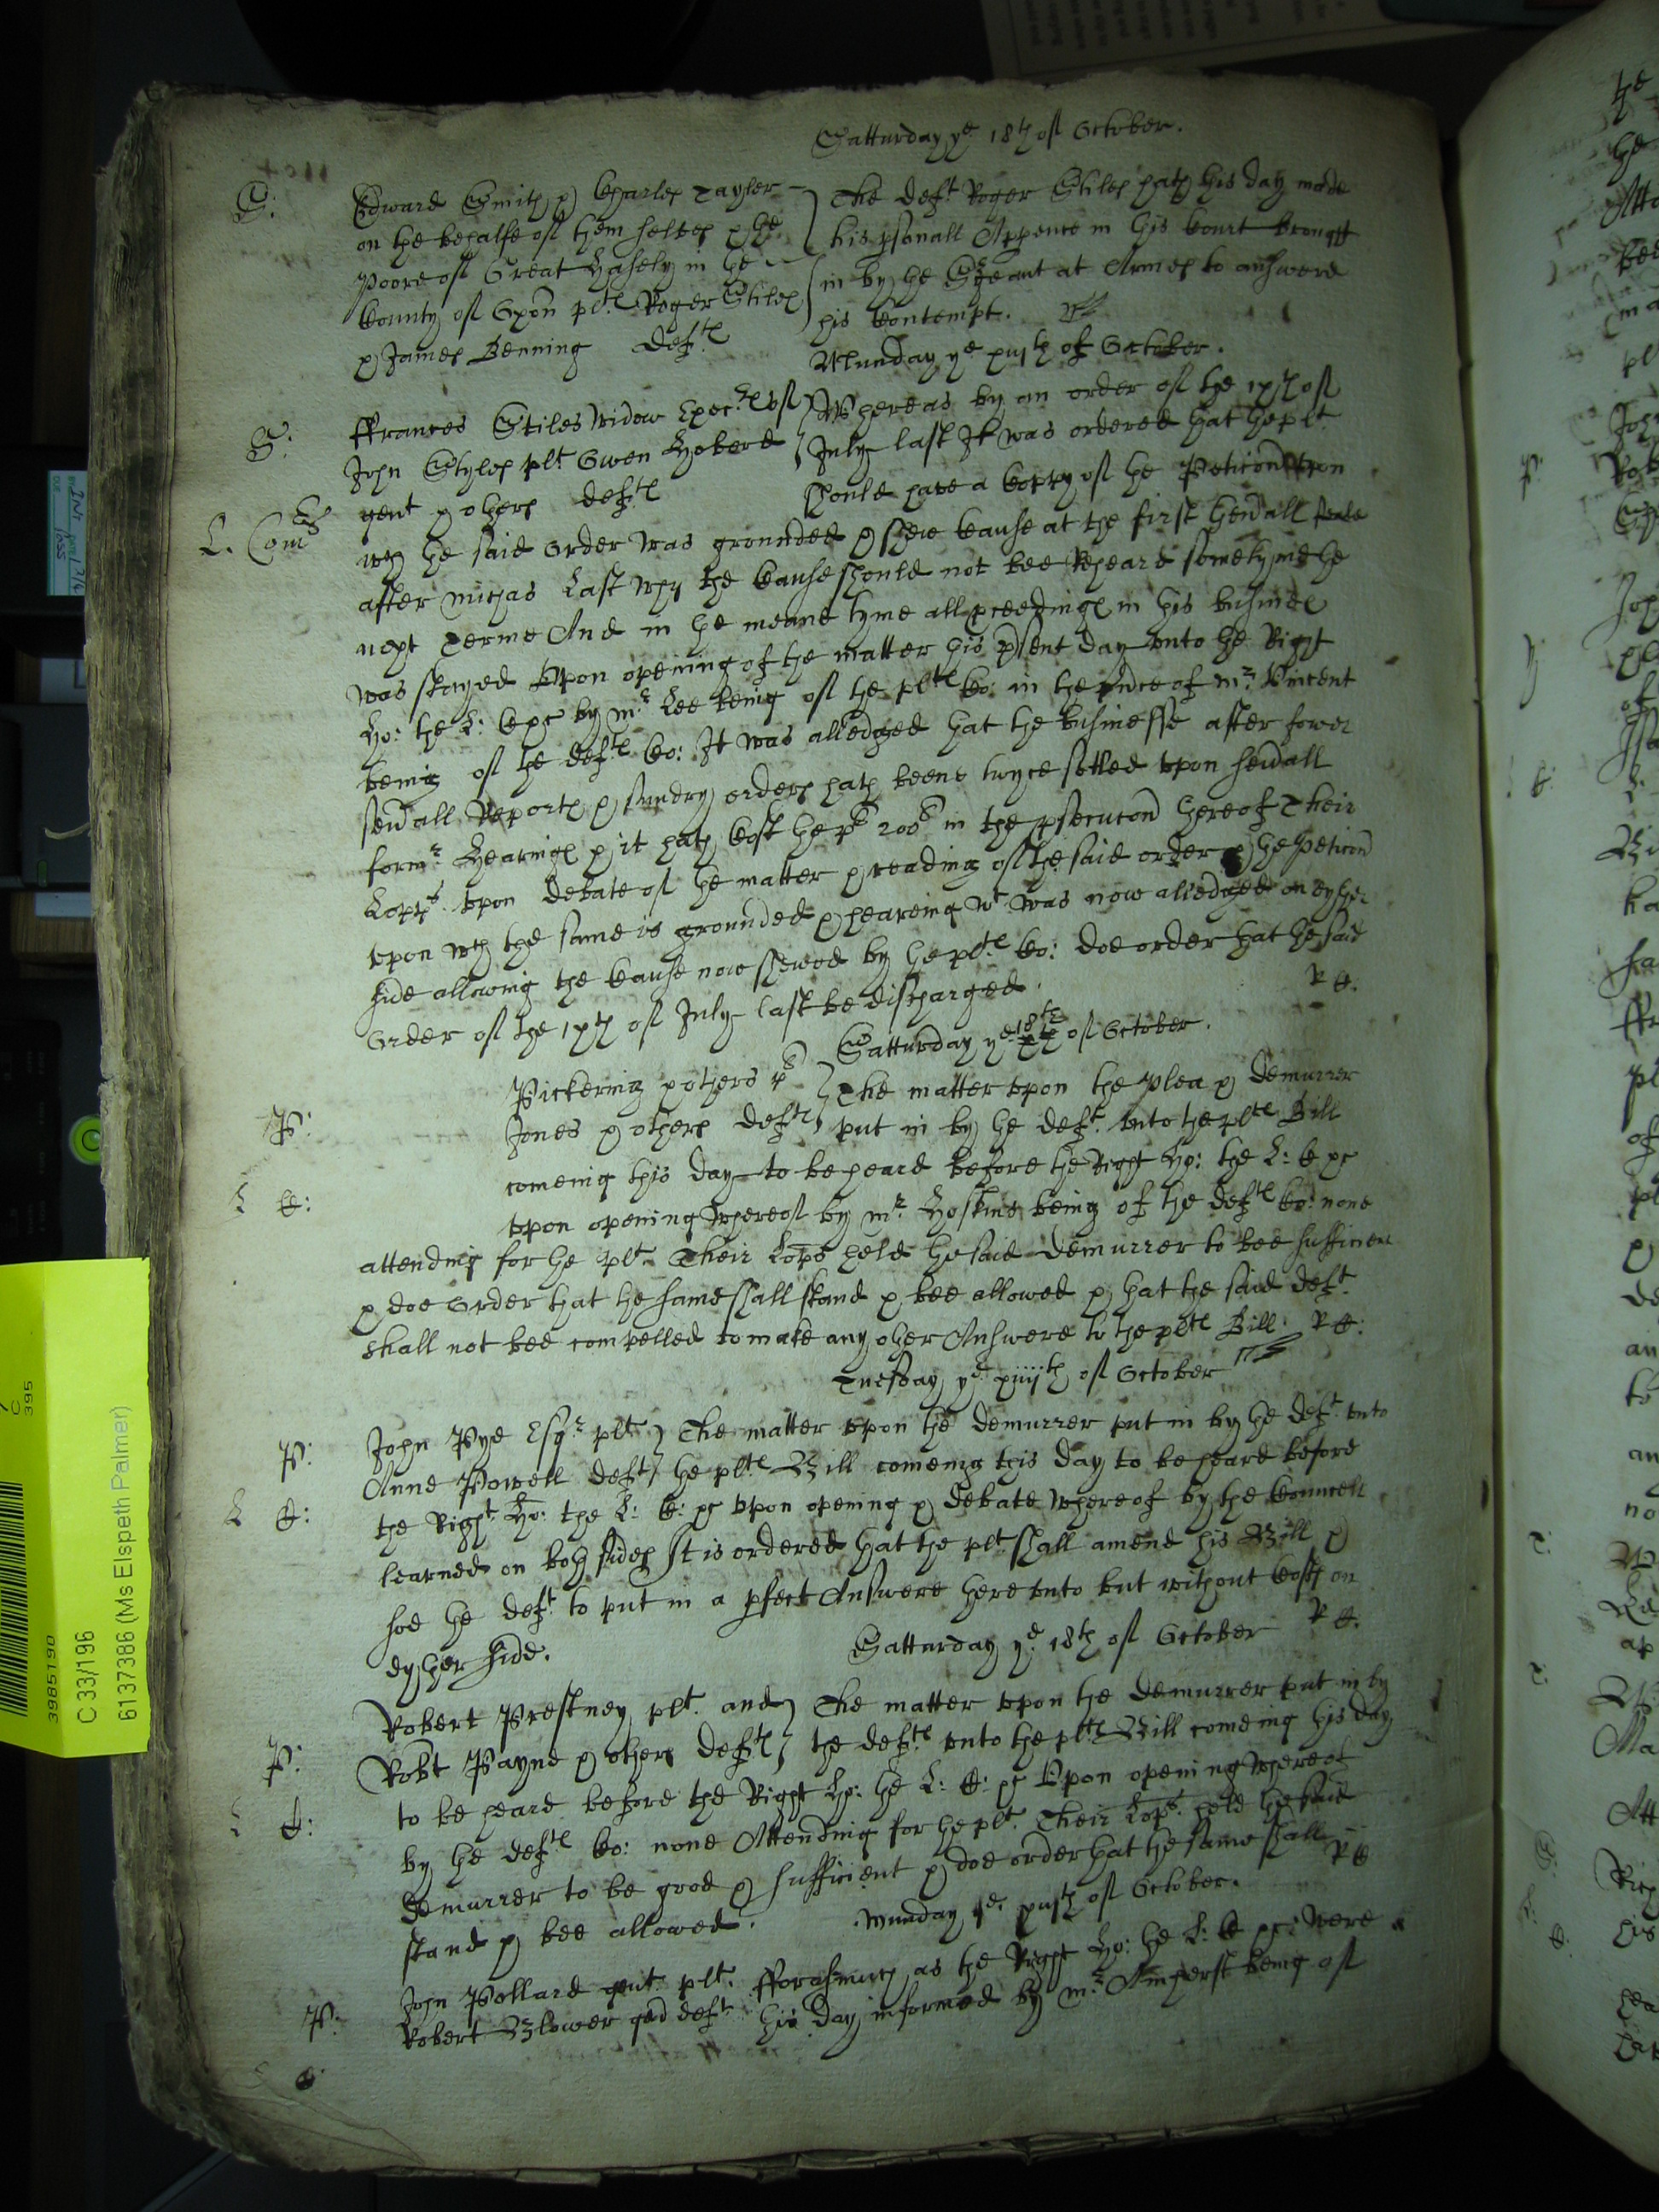 Satturday ye 18th of October.
S: Edward Smith & Charles Tayler
on the behalfe of them selves & the
Poore of Great Haseley in the
County of Oxon plts Roger Stiles
& James Benning defts
The deft Roger Stiles hath this day made
his psonall Appence in this Court brought
in by the Sergeant at Armes to answere
his Contempt.
Munday ye xiijth of October.
S: ffrances Stiles Widow Exec of
John Styles plt Owen Hobert
gent & others defts
L. Coms
Whereas by an order of the ixth of
July last It was ordered that the plt
should have a Coppy of the Peticon upon
wch the said Order was grounded & shew cause at the first Senall
after michas Last why the Cause should not bee Reheard sometyme the
next Terme And in the meane tyme all pceedings in this busines
was stayed Upon opening of the matter this psent day unto the Right
Ho: the L: Comrs by mr Lee being of the plts Co: in the pnce of mr Vincent
being of the defts Co: It was alledged that the businesse after fower
sevall Reports & sundry orders hath beene twyce setled upon sevall
formr Hearings & it hath Cost the plt 200l in the psecucon thereof Their
Lopps upon debate of the matter & reading of the said order & the Peticon
upon wch the same is grounded & heareing wt was now alledged on eyther
side allowing the Cause now shewed by the plts Co: doe order that the said
Order of the ixth of July last be discharged.
R C.
Satturday ye 18th of October.
P: Pickering & others plts
Jones & others defts
L C:
The matter upon the Plea & demurrer
put in by the deft unto the plts Bill
comeing this day to be heard before the Right Ho: the L: C &c
upon opening whereof by mr Hoskins being of the defts Co: none
attending for the plt Their Lopps held the said demurrer to bee sufficient
& doe Order that the same shall stand & bee allowed & that the said deft
shall not bee compelled to make any other Answere to the plts Bill. R C:
Tuesday ye xiiijth of October
P: John Pye Esqr plt
Anne Powell deft
L C:
The matter upon the demurrer put in by the deft unto
the plts Bill comeing this day to be heard before
the Right Ho: the L: C: &c upon opening & debate whereof by the Councell
learned on both sides It is ordered that the plt shall amend his Bill &
soe the deft to put in a pfect Answere thereunto but without Costs on
eyther side.
R C.
Satturday ye 18th of October
P: Robert Prestney plt and
Robt Payne & others defts
L C:
The matter upon the demurrer put in by
the defts unto the plts Bill comeing this day
to be heard before the Right Ho: the L: C: &c Upon opening whereof
by the defts Co: none Attending for the plt Their Lopps held the said
demurrer to be good & sufficient & doe order that the same shall
stand & bee allowed.
R C
Munday ye xiijth of October.
P: John Pollard gent plt.
Robert Blower gen deft
C
fforasmuch as the Right Ho: the L: C &c: were
this day informed by mr Amherst being of
C 33/196
6137386 (Ms Elspeth Palmer)
3985190